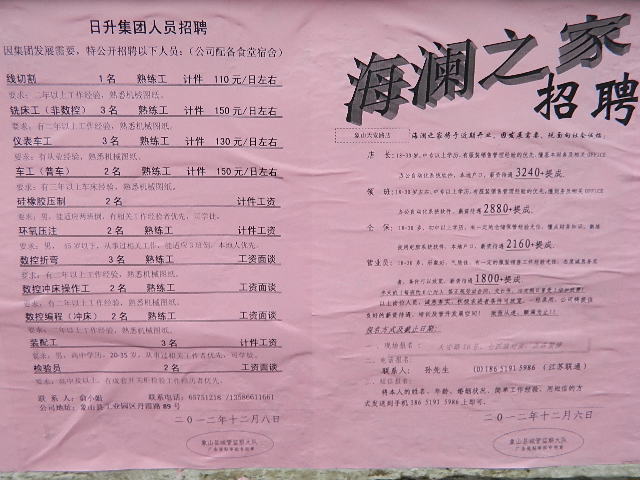 日升集团人员招聘
因集团发展需要，特公开招聘以下人员：（公司配备食堂宿舍）
线切割 1名 熟练工 计件 110元/日左右
要求：二年以上工作经验，熟悉机械图纸。
铣床工（非数控） 3名 熟练工 计件 150元/日左右
要求：有二年以上工作经验，熟悉机械图纸。
仪表车工 3名 熟练工 计件 130元/日左右
要求：有从业经验，熟悉机械图纸。
车工（普车） 2名 熟练工 计件 150元/日左右
要求：有三年以上车床经验，熟悉机械图纸。
硅橡胶压制 2名 计件工资
要求：男，能适应两班制，有相关工作经验者优先，可学徒。
环氧压注 2名 计件工资
要求：男，45岁以下，从事过相关工作，能适应3班倒，本地人优先。
数控折弯 3名 工资面谈
要求：有二年以上工作经验，熟悉机械图纸。
数控冲床操作工 2名 熟练工 工资面谈
要求：有二年以上工作经验，熟悉机械图纸。
数控编程（冲床） 2名 熟练工 工资面谈
要求：有二年以上工作经验，熟悉机械图纸。
装配工 3名 计件工资
要求：男，高中学历，20-35岁，从事过相关工作者优先，可学徒。
检验员 2名 工资面谈
要求：高中及以上，有成套开关柜检验工作阅历者优先。
联系人：俞小姐 联系电话：65751218/13586611661
公司地址：象山县工业园区丹霞路89号
二○一二年十二月八日
象山县城管监察大队
广告张贴审批专用章
海澜之家
招聘
象山天安路店
海澜之家将于近期开业，因发展需要，现面向社会招聘：
店长：18-35岁，中专以上学历，有服装销售管理经验的优先，懂基本财务及相关OFFICE
办公自动化系统软件，本地户口，薪资待遇3240+奖成．
领班：18-30岁左右，中专以上学历，有服装销售管理经验的优先，懂财务及相关OFFICE
办公自动化系统软件，薪资待遇2880+奖成．
仓保：18-30岁，初中以上学历，有一定的仓储保管经验优先，懂点财务知识，熟练
使用电脑系统软件，本地户口，薪资待遇2160+奖成．
营业员：18-30岁，形象好，气质佳，有一定的服装销售工作经验优先，态度诚恳务实
者，条件可以放宽，薪资待遇1800+奖成．
以上岗位人员，诚恳务实，积极求进者条件可放宽，一经录用，公司将提供
良好的薪资待遇，培训及晋升发展空间！
报名方式及截止日期：
一．现场报名：
二．电话报名：
联系人：孙先生 (0)18651915986（江苏联通）
三．短信报名：
将本人的姓名、年龄、婚姻状况、简单工作经验，用短信的方
式发送到手机18651915986上即可．
二○一二年十二月六日
象山县城管监察大队
广告张贴审批专用章